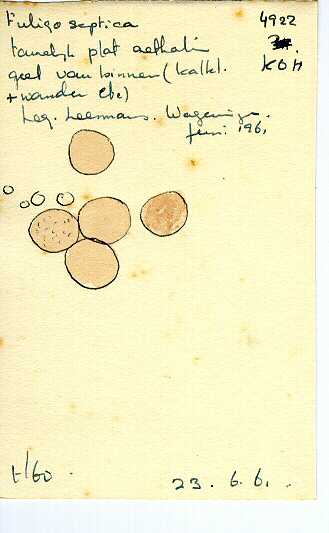 Fuligo septica 4922
tamelijk plat aethalium
geel van binnen (kalkl. KOH
+ wanden etc)
Leg. Leermans. Wageningen.
juni 1961
1/60
23. 6. 61